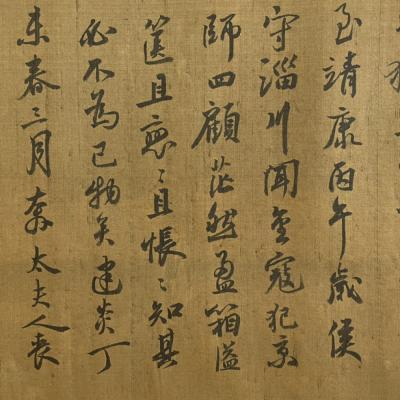 至靖康丙午歲侯
守淄川聞金寇犯京
師四顧茫然盈箱溢
篋且戀〻且悵〻知其
必不為己物矣建炎丁
未春三月奔太夫人喪